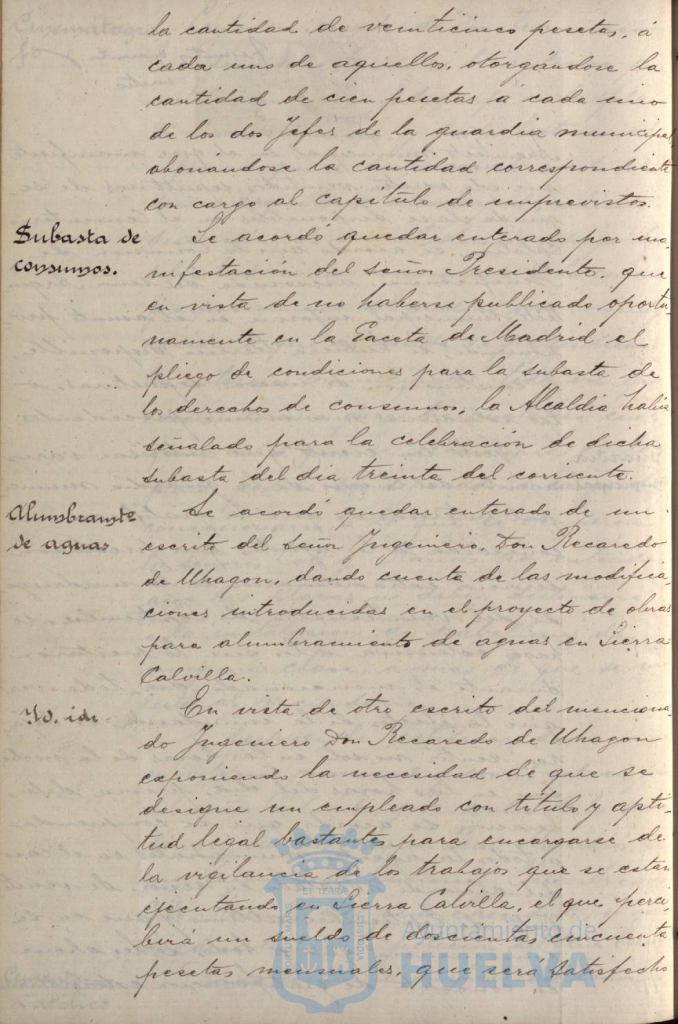 la cantidad de veinticinco pesetas, á
cada uno de aquellos, otorgándose la
cantidad de cien pesetas á cada uno
de los dos Jefes de la guardia municipal,
abonándose la cantidad correspondiente
con cargo al capítulo de imprevistos.
Subasta de
consumos.
Se acordó quedar enterado por ma-
nifestación del Señor Presidente, que
en vista de no haberse publicado oportu-
namente en la Gaceta de Madrid el
pliego de condiciones para la subasta de
los derechos de consumos, la Alcaldia habia
señalado para la celebración de dicha
subasta del dia treinta del corriente.
Alumbramto
de aguas
Se acordó quedar enterado de un
escrito del Señor Ingeniero, Don Recaredo
de Uhagon, dando cuenta de las modifica-
ciones introducidas en el proyecto de obras
para alumbramiento de aguas en Sierra
Calvilla.
Yd. id.
En vista de otro escrito del menciona-
do Ingeniero Don Recaredo de Uhagon
exponiendo la necesidad de que se
designe un empleado con título y apti-
tud legal bastantes para encargarse de
la vigilancia de los trabajos que se están
ejecutando en Sierra Calvilla, el que perci-
birá un sueldo de doscientas cincuenta
pesetas mensuales, que será satisfecho
Ayuntamiento de
HUELVA